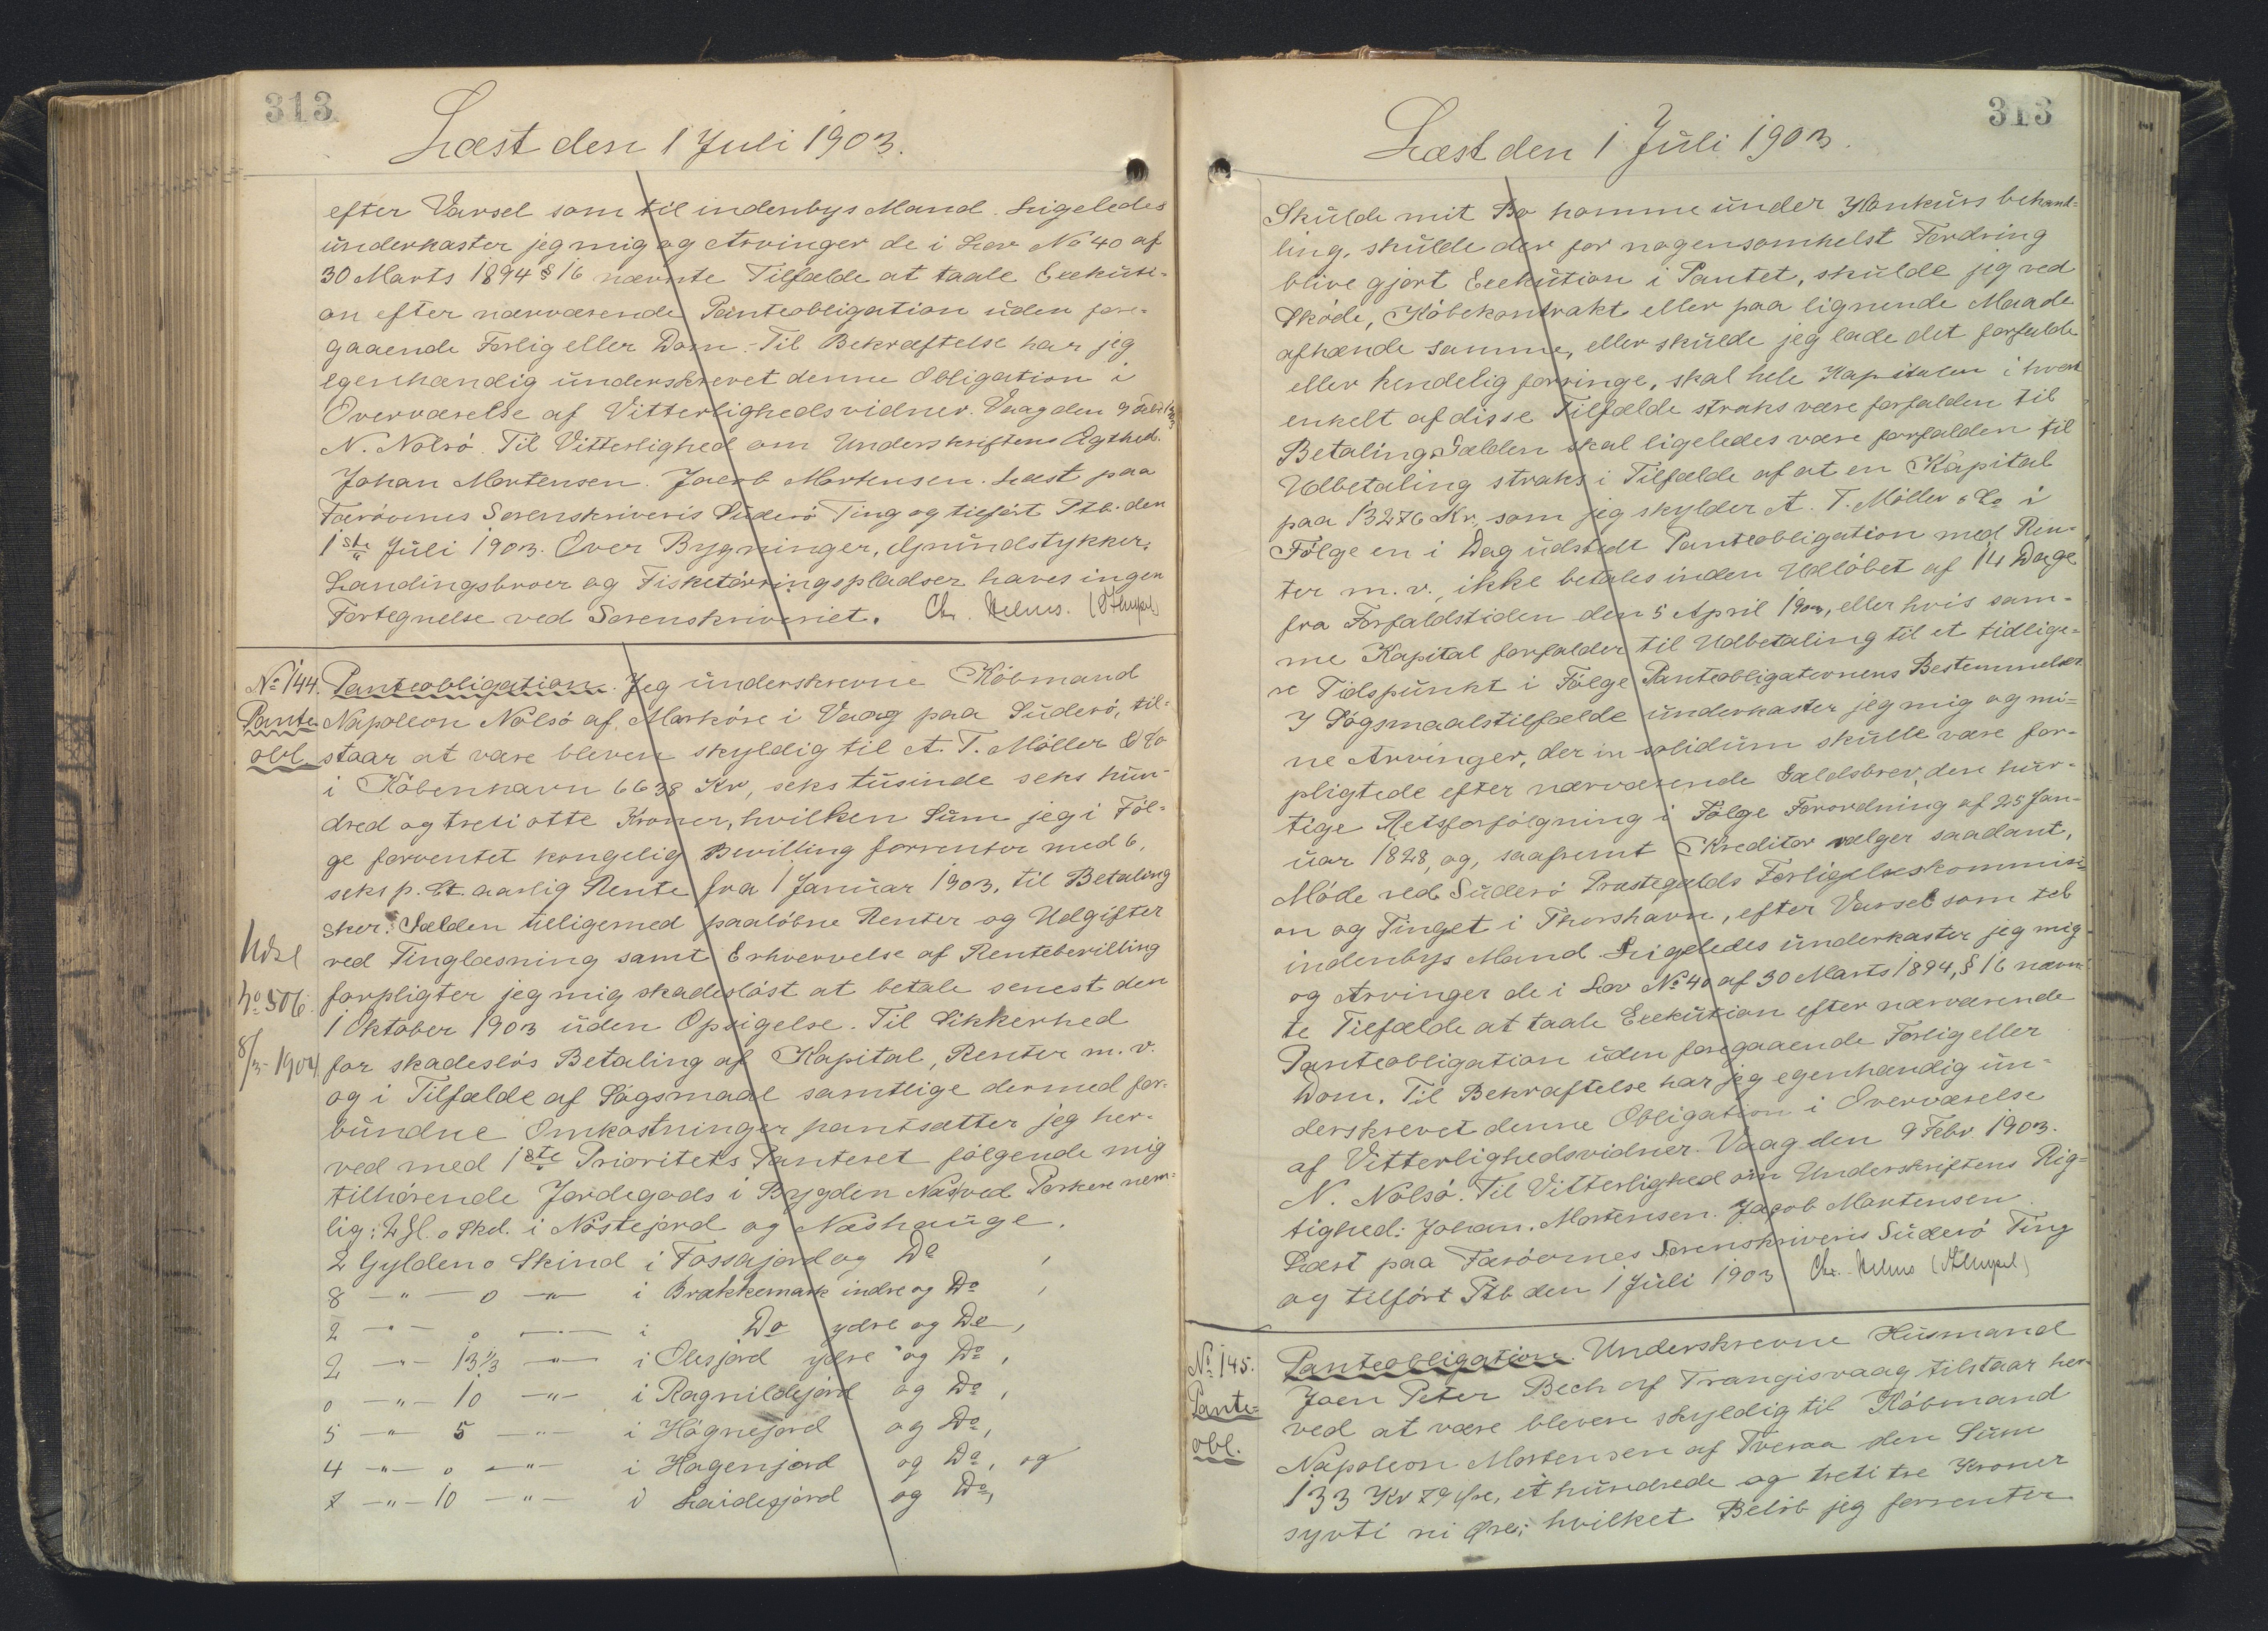 313
Læst den 1 Juli 1903.
efter Varsel som til indenbys Mand. Ligeledes
underkaster jeg mig og Arvinger de i Lov No 40 af
30 Marts 1894 § 16 nævnte Tilfælde at taale Exekuti-
on efter nærværende Panteobligation uden fore-
gaaende Forlig eller Dom - Til Bekræftelse har jeg
egenhændig underskrevet denne Obligation i
Overværelse af Vitterlighedsvidner. Vaag den 9 Febr 1903
N. Nolsö. Til Vitterlighed om Underskriftens Ægthed.
Johan Mortensen. Jacob Mortensen. Læst paa
Færöernes Sorenskriveris Suderö Ting og tilfört Ptb. den
1ste Juli 1903. Over Bygninger, Grundstykker,
Landingsbroer og Fisketörringspladser haves ingen
Fortegnelse ved Sorenskriveriet. Chr. Helms. (Stempel)
No 144.
Pante
obl.
Panteobligation. Jeg underskrevne Köbmand
Napoleon Nolsö af Marköre i Vaag paa Suderö, til-
staar at være bleven skyldig til A. T. Möller & Co
i Köbenhavn 6638 Kr, seks tusinde seks hun-
dred og treti otte Kroner, hvilken Sum jeg i Föl-
ge forventet kongelig Bevilling forrenter med 6,
seks p. Ct. aarlig Rente fra 1 Januar 1903, til Betaling
sker. Gælden tilligemed paalöbne Renter og Udgifter
ved Tinglæsning samt Erhvervelse af Rentebevilling
forpligter jeg mig skadeslöst at betale senest den
1 Oktober 1903 uden Opsigelse. Til Sikkerhed
for skadeslös Betaling af Kapital, Renter m. v.
og i Tilfælde af Sögsmaal samtlige dermed for-
bundne Omkostninger pantsætter jeg her-
ved med 1ste Prioritets Panteret fölgende mig
tilhörende Jordegods i Bygden Næs ved Porkere nem-
lig: 2 Gl. o Skd. i Nöstejord og Næshauge,
2 Gylden o Skind i Fossajord og Do ,
8 —"— o —"— i Brækkemark indre og Do ,
2 —"— o —"— i Do ydre og Do ,
2 —"— 13 1/3 —"— i Olesjord ydre og Do ,
o —"— 10 —"— i Ragnildejord og Do ,
5 —"— 5 —"— i Högnejord og Do ,
4 —"— o —"— i Hagenjord og Do , og
7 —"— 10 —"— i Laidesjord og Do ,
Udsl
No 506.
8/3-1904
313
Læst den 1 Juli 1903.
Skulde mit Bo komme under Konkurs behand-
ling, skulde der for nogensomhelst Fordring
blive gjort Exekution i Pantet, skulde jeg ved
Sköde, Köbekontrakt eller paa lignende Maade
afhænde samme, eller skulde jeg lade det forfalde
eller kendelig forringe, skal hele Kapitalen i hvert
enkelt af disse Tilfælde straks være forfalden til
Betaling. Gælden skal ligeledes være forfalden til
Udbetaling straks i Tilfælde af at en Kapital
paa 13276 Kr, som jeg skylder A. T. Möller & Co i
Fölge en i Dag udstedt Panteobligation med Ren-
ter m. v., ikke betales inden Udlöbet af 14 Dage
fra Forfaldstiden den 5 April 1903, eller hvis sam-
me Kapital forfalder til Udbetaling til et tidlige-
re Tidspunkt i Fölge Panteobligationens Bestemmelser.
I Sögsmaalstilfælde underkaster jeg mig og mi-
ne Arvinger, der in solidum skulle være for-
pligtede efter nærværende Gældsbrev, den hur-
tige Retsforfölgning i Fölge Forordning af 25 Jan-
uar 1828, og, saafremt Kreditor vælger saadant,
Möde ved Suderö Præstegælds Forligelseskommissi-
on og Tinget i Thorshavn, efter Varsel som til
indenbys Mand. Ligeledes underkaster jeg mig
og Arvinger de i Lov No 40 af 30 Marts 1894, § 16 nævn-
te Tilfælde at taale Exekution efter nærværende
Panteobligation uden foregaaende Forlig eller
Dom. Til Bekræftelse har jeg egenhændig un-
derskrevet denne Obligation i Overværelse
af Vitterlighedsvidner. Vaag den 9 Febr. 1903.
N. Nolsö. Til Vitterlighed om Underskriftens Rig-
tighed: Johan. Mortensen. Jacob Mortensen.
Læst paa Færöernes Sorenskriveris Suderö Ting
og tilfört Ptb den 1 Juli 1903 Chr. Helms (Stempel)
No 145.
Pante-
obl.
Panteobligation. Underskrevne Husmand
Joen Peter Bech af Trangisvaag tilstaar her-
ved at være bleven skyldig til Köbmand
Napoleon Mortensen af Tveraa den Sum
133 Kr 79 Øre, et hundrede og treti tre Kroner
syvti ni Øre; hvilket Belöb jeg forrenter